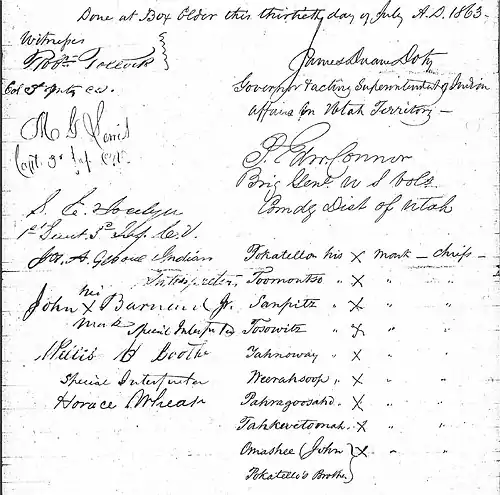 Done at Box Elder this thirtieth day of July A.D. 1863.
Witnesses
Robt. Pollock
Col 3d Infty C.V.
M. G. Lewis
Capt. 3d Inf C.V.
S. E. Jocelyn
1st Lieut. 3d Inf. C.V.
Jos. A. Gebone Indian
Interpreter.
John his X mark Barnard Jr.
Special Interpreter
Willis H Boothe
Special Interpreter
Horace Wheat
James Duane Doty
Governor & acting Superintendent of Indian
affairs for Utah Territory —
P. Edw. Connor
Brig Genl. U S Vols.
Comdg Dist of Utah
Pokatello his X mark — chief —
Toomontso " X " "
Sanpitz " X " "
Tosowitz " X " "
Yahnoway " X " "
Weerahsoop " X " "
Pahragoosahd " X " "
Tahkevetoonah " X " "
Omashee (John X " "
Pokatello's Brother)